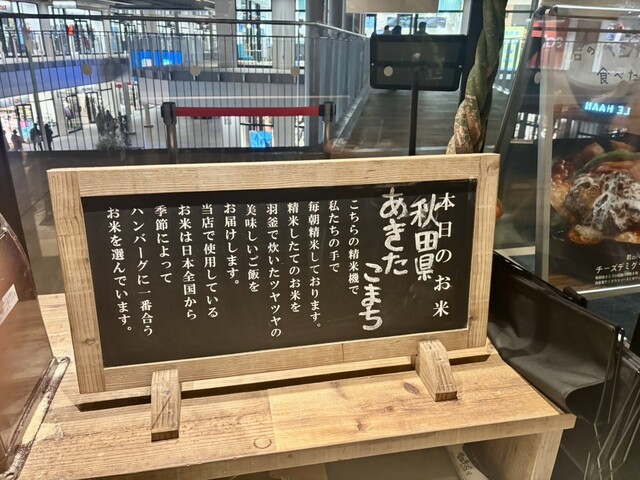 本日のお米
秋田県
あきたこまち
こちらの精米機で
私たちの手で
毎朝精米しております。
精米したてのお米を
羽釜で炊いたツヤツヤの
美味しいご飯を
お届けします。
当店で使用している
お米は日本全国から
季節によって
ハンバーグに一番合う
お米を選んでいます。
食べた
LE HAAN
チーズデミグ